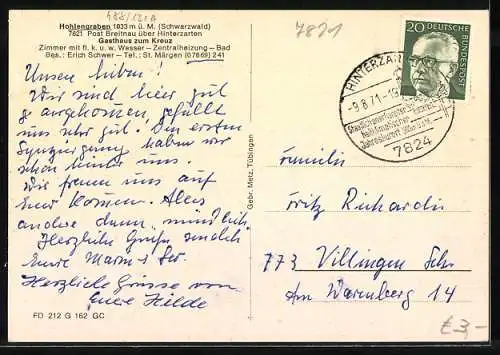 482/121A
7821
Hohlengraben 1033 m ü. M. (Schwarzwald)
7821 Post Breitnau über Hinterzarten
Gasthaus zum Kreuz
Zimmer mit fl. k. u. w. Wasser – Zentralheizung – Bad
Bes.: Erich Schwer – Tel.: St. Märgen (07669) 241
20
DEUTSCHE BUNDESPOST
HINTERZARTEN
-9.8.71-19
Staatlich anerkannter
heilklimatischer
Jahreskurort
7824
Unsere Lieben!
Wir sind hier gut
angekommen, gefällt
uns sehr gut. Den ersten
Spaziergang haben wir
schon hinter uns.
Wir freuen uns auf
Euer Kommen. Alles
andere dann mündlich
Herzliche Grüße
Eure
Herzliche Grüsse von
Eurer Hilde
Gebr. Metz, Tübingen
Familie
Fritz Richardin
773 Villingen Schw.
Am Warenberg 14
€ 3,-
FD 212 G 162 GC